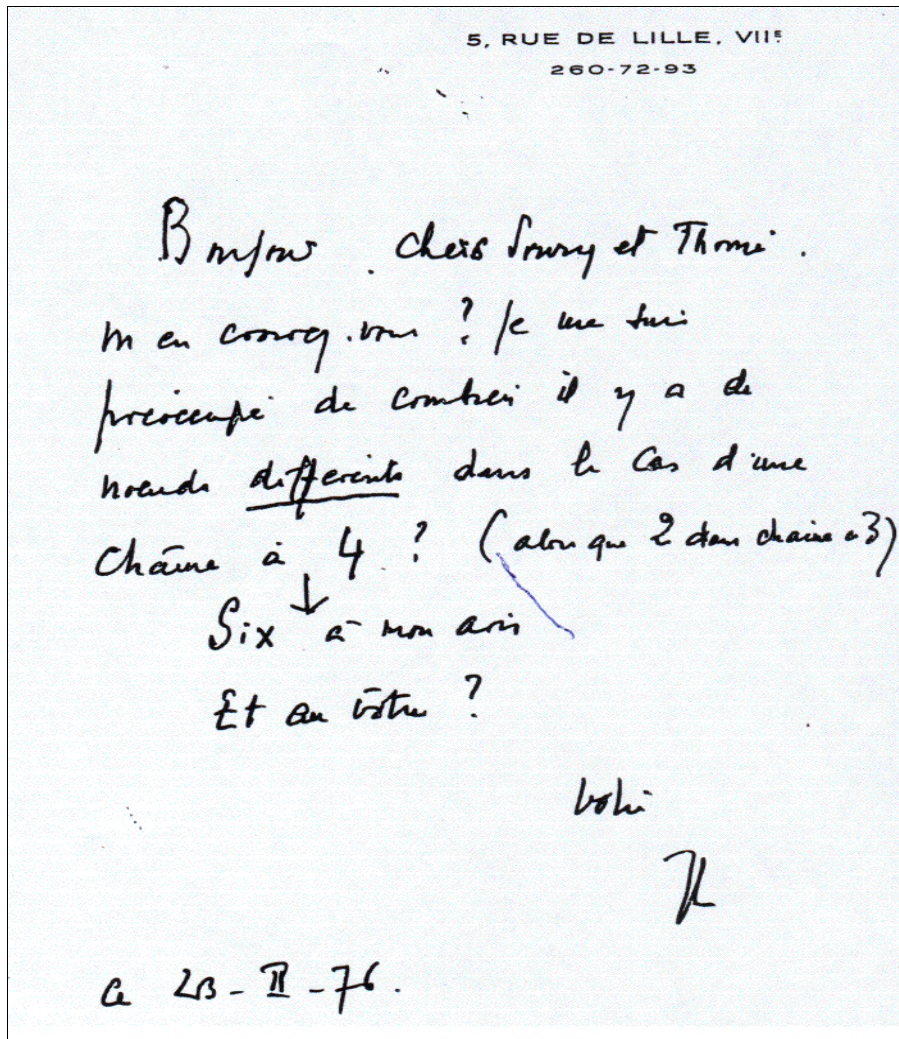 5, RUE DE LILLE, VIIᴱ
260-72-93
Bonjour. chers Soury et Thomé.
m'en croirez-vous ? Je me suis
préoccupé de combien il y a de
nœuds différents dans le cas d'une
chaîne à 4 ? (alors que 2 dans chaîne à 3)
Six à mon avis
Et au vôtre ?
votre
JL
ce 23-II-76.